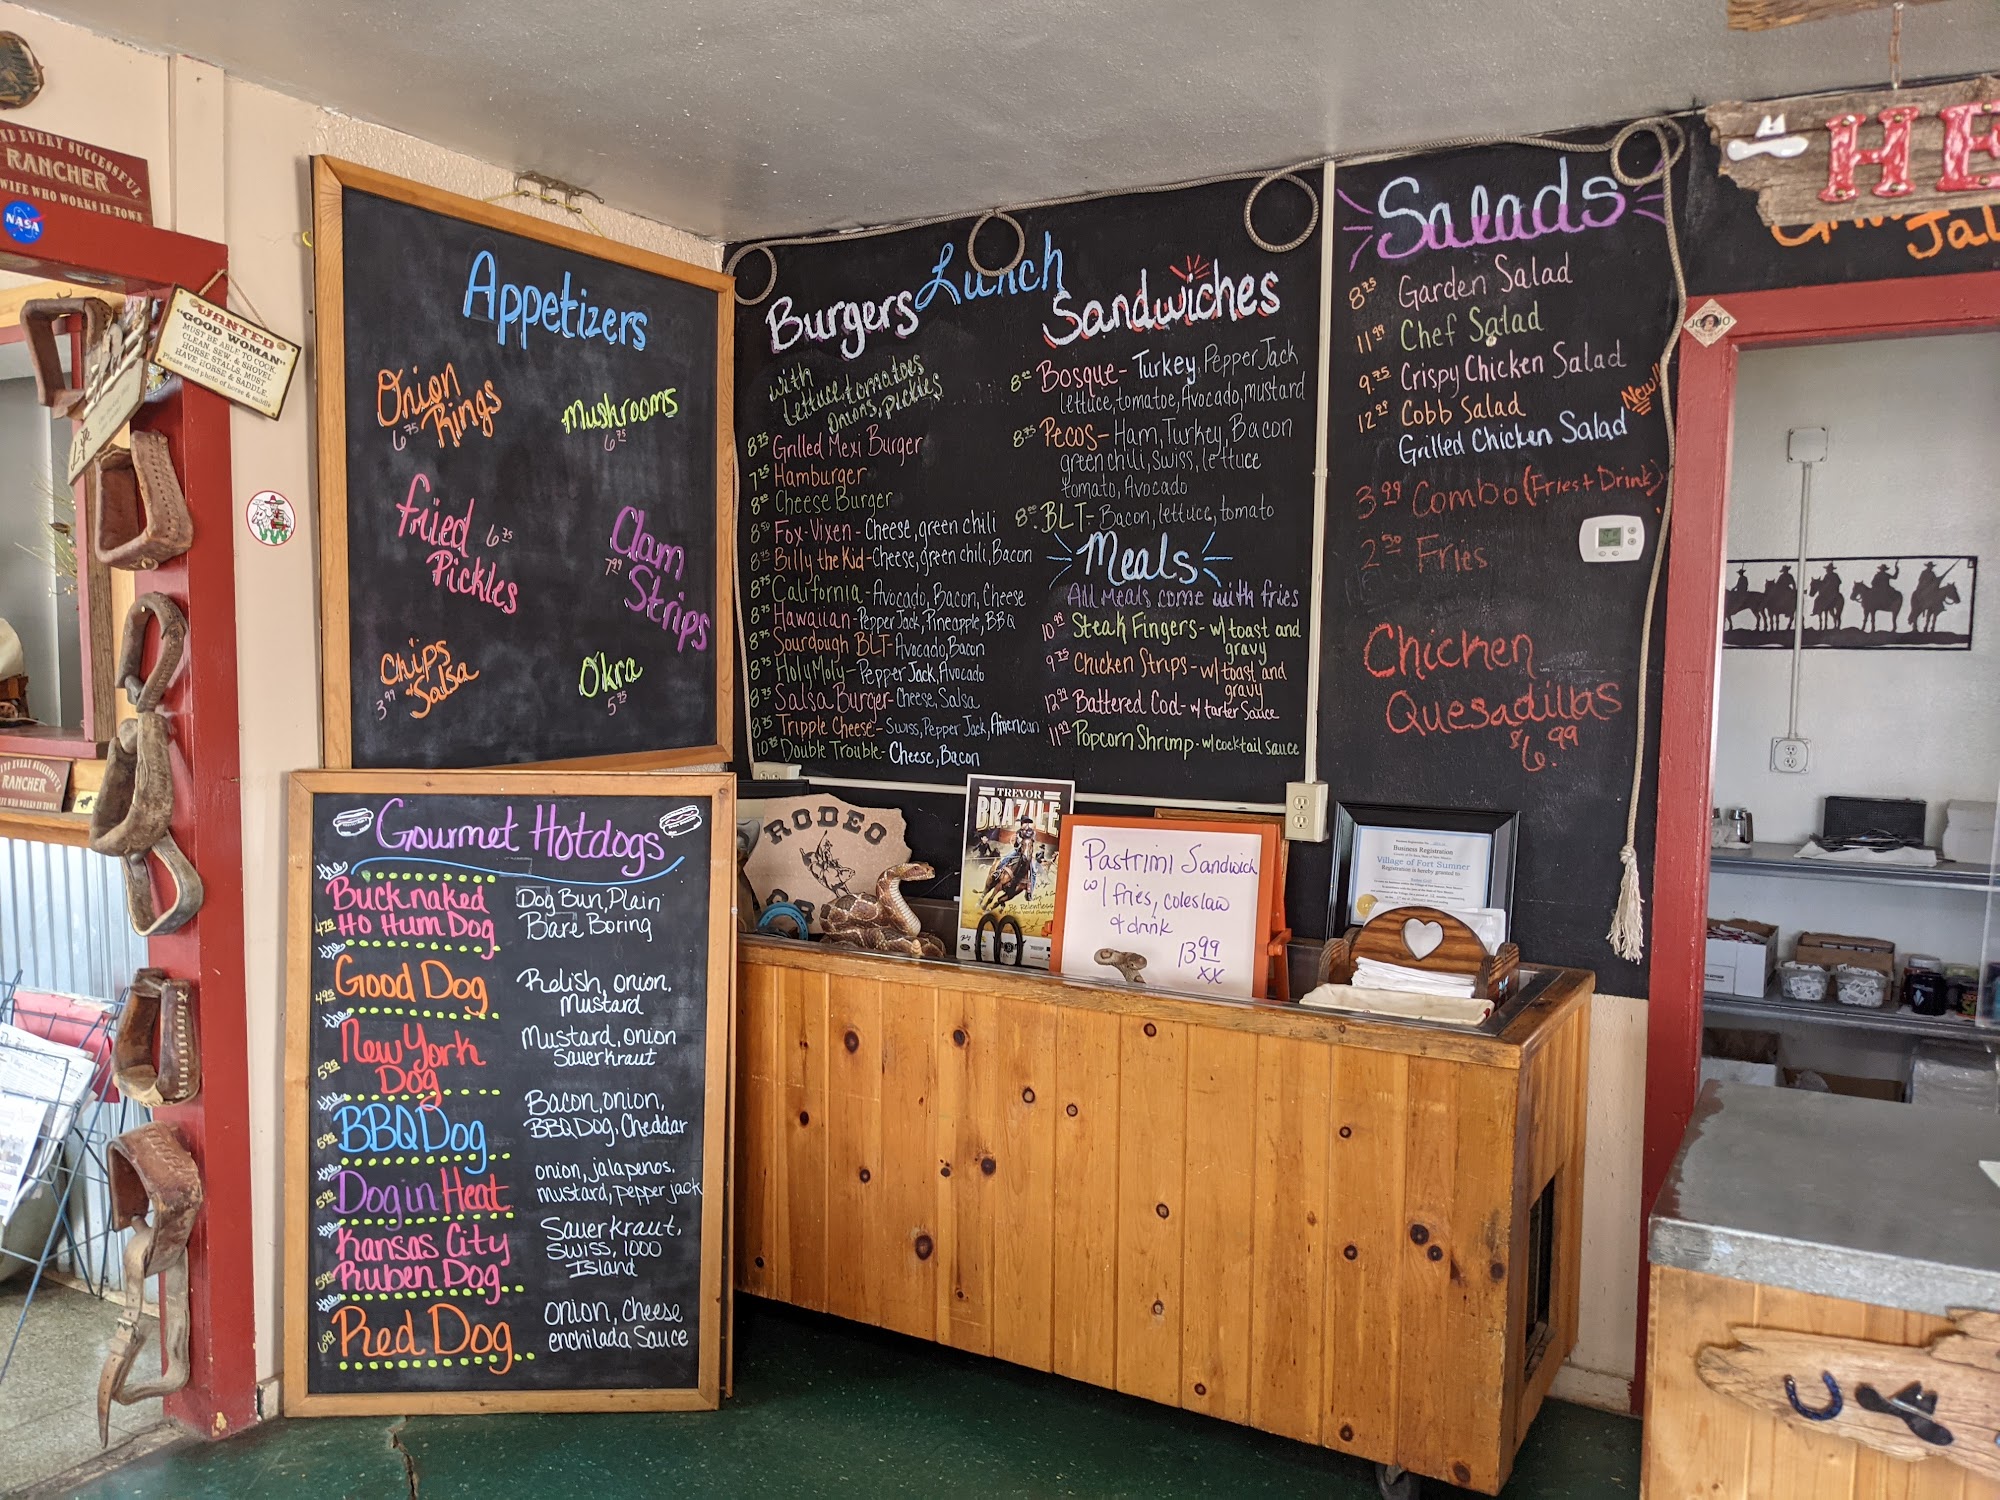 ND EVERY SUCCESSFUL
RANCHER
WIFE WHO WORKS IN TOWN
NASA
WANTED
"GOOD WOMAN"
MUST BE ABLE TO COOK,
CLEAN, SEW, & SHOVEL
HORSE STALLS, MUST
HAVE HORSE & SADDLE.
Please send photo of horse & saddle
RANCHER
WIFE WHO WORKS IN TOWN
Appetizers
Onion
Rings
6 75
Mushrooms
6 75
fried 6 75
Pickles
Clam
7 99 Strips
Chips
& Salsa
3 99
Okra
5 75
Gourmet Hotdogs
the
Bucknaked Dog Bun, Plain
4.75 Ho Hum Dog Bare Boring
the
4.95 Good Dog Relish, onion,
Mustard
the
New York Mustard, onion
5.95 Dog Sauerkraut
the
5.95 BBQ Dog Bacon, onion,
BBQ Dog, Cheddar
the
5.95 Dog in Heat onion, jalapenos,
mustard, pepper jack
the
Kansas City Sauerkraut,
5.95 Ruben Dog Swiss, 1000
Island
the
6.99 Red Dog onion, cheese
enchilada Sauce
Lunch
Burgers
with
lettuce, tomatoes
Onions, pickles
8 75 Grilled Mexi Burger
7 25 Hamburger
8 00 Cheese Burger
8 50 Fox-Vixen - Cheese, green chili
8 75 Billy the Kid - Cheese, green chili, Bacon
8 75 California - Avocado, Bacon, Cheese
8 75 Hawaiian - Pepper Jack, Pineapple, BBQ
8 75 Sourdough BLT - Avocado, Bacon
8 75 Holy Moly - Pepper Jack, Avocado
8 75 Salsa Burger - Cheese, Salsa
8 75 Tripple Cheese - Swiss, Pepper Jack, American
10 75 Double Trouble - Cheese, Bacon
Sandwiches
8 00 Bosque - Turkey, Pepper Jack
lettuce, tomatoe, Avocado, mustard
8 75 Pecos - Ham, Turkey, Bacon
green chili, Swiss, lettuce
tomato, Avocado
8 00 BLT - Bacon, lettuce, tomato
Meals
All Meals come with fries
10 99 Steak Fingers - w/ toast and
gravy
9 75 Chicken Strips - w/ toast and
gravy
12 99 Battered Cod - w/ tarter Sauce
11 99 Popcorn Shrimp - w/ cocktail sauce
Salads
8 75 Garden Salad
11 99 Chef Salad
9 75 Crispy Chicken Salad
12 99 Cobb Salad
New!!
Grilled Chicken Salad
3 99 Combo (Fries + Drink)
2 50 Fries
Chicken
Quesadillas
$6.99
HE
Jal
RODEO
TREVOR
BRAZILE
Pastrimi Sandwich
w/ fries, coleslaw
& drink
13 99
xx
Business Registration
Village of Fort Sumner
Registration is hereby granted to